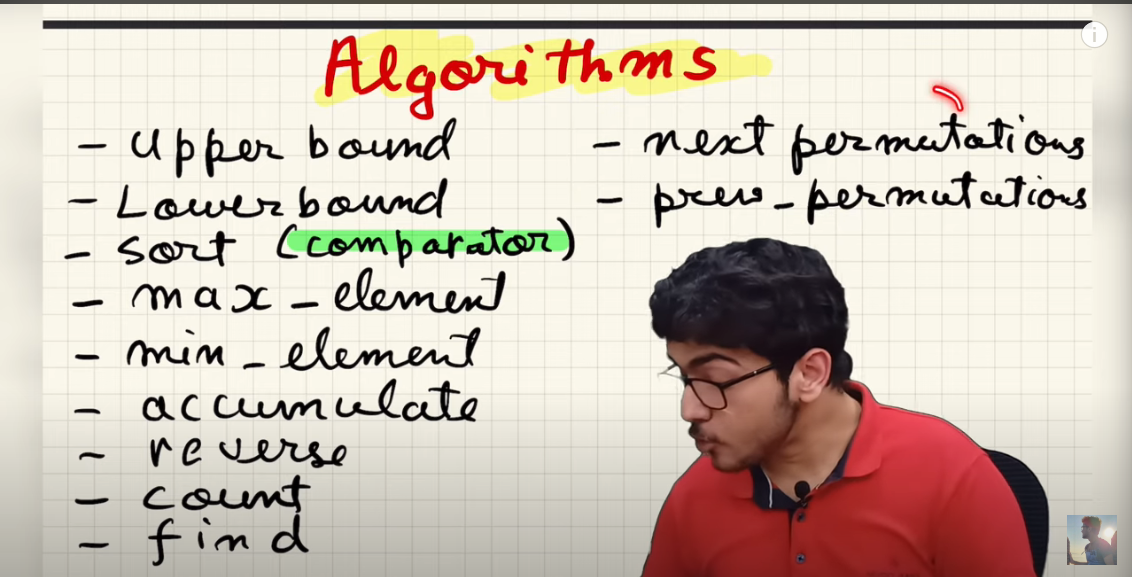 Algorithms
- upper bound
- Lower bound
- sort (comparator)
- max_element
- min_element
- accumulate
- reverse
- count
- find
- next permutations
- prev_permutations